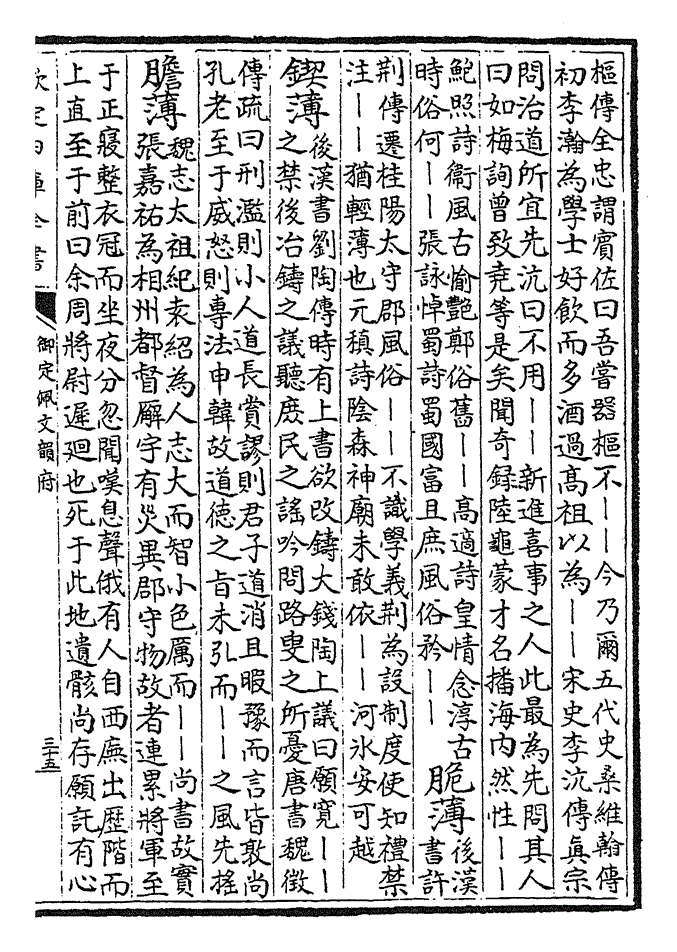 樞傳全忠謂賓佐曰吾嘗器樞不——今乃爾五代史桑維翰傳
初李瀚為學士好飲而多酒過髙祖以為——宋史李沆傳真宗
問治道所宜先沆曰不用——新進喜事之人此最為先問其人
曰如梅詢曾致堯等是矣聞奇錄陸龜蒙才名播海内然性——
鮑照詩衞風古愉艷鄭俗舊——高適詩皇情念淳古
時俗何——張詠悼蜀詩蜀國富且庶風俗矜——
脆薄
後漢
書許
荆傳遷桂陽太守郡風俗——不識學義荆為設制度使知禮禁
注——猶輕薄也元稹詩陰森神廟未敢依——河氷安可越
鍥薄
後漢書劉陶傳時有上書欲改鑄大錢陶上議曰願寛——
之禁後冶鑄之議聽庶民之謠吟問路叟之所憂唐書魏徵
傳疏曰刑濫則小人道長賞謬則君子道消且暇豫而言皆敦尚
孔老至于威怒則專法申韓故道德之旨未弘而——之風先摇
膽薄
魏志太祖紀袁紹為人志大而智小色厲而——尚書故實
張嘉祐為相州都督廨宇有災異郡守物故者連累將軍至
于正寢整衣冠而坐夜分忽聞嘆息聲俄有人自西廡出歴階而
上直至于前曰余周將尉遲廻也死于此地遺骸尚存願託有心
欽定四庫全書
御定佩文韻府
三十五